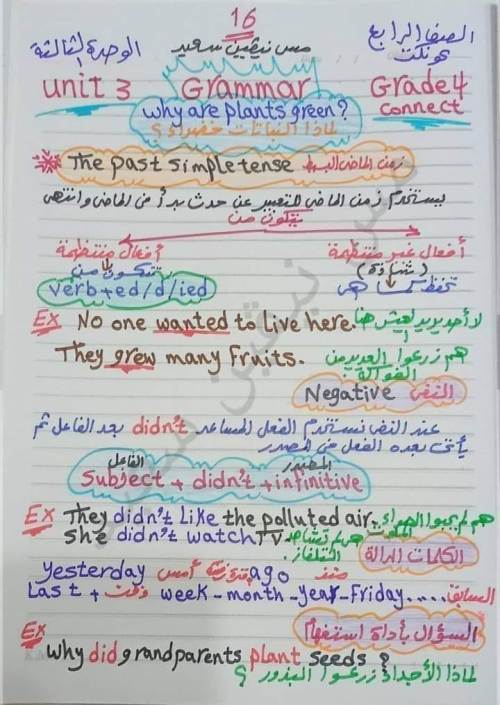 16
الصف الرابع
مس نيفين سعيد
الوحدة الثالثة
كونكت
unit 3 Grammar Grade 4
connect
why are plants green?
لماذا النباتات خضراء؟
The past simple tense زمن الماضي البسيط
يستخدم زمن الماضي للتعبير عن حدث بدأ في الماضي وانتهى
يتكون من
أفعال غير منتظمة
أفعال منتظمة
(شاذة)
تتكون من
تحفظ كما هي
verb + ed/d/ied
EX No one wanted to live here. لا أحد يريد لعيش هنا
They grew many fruits. هم زرعوا العديد من الفواكة.
Negative النفي
عند النفي نستخدم الفعل المساعد didn't بعد الفاعل ثم
يأتى بعده الفعل في المصدر
الفاعل المصدر
Subject + didn't + infinitive
EX They didn't like the polluted air. هم لم يحبوا الهواء الملوث
She didn't watch TV هي لم تشاهد التلفاز.
الكلمات الدالة
yesterday أمس ago منذ
Last + وقت week - month - year - Friday..... السابق
السؤال بأداة استفهام
EX
why did grandparents plant seeds?
لماذا الأجداد زرعوا البذور؟